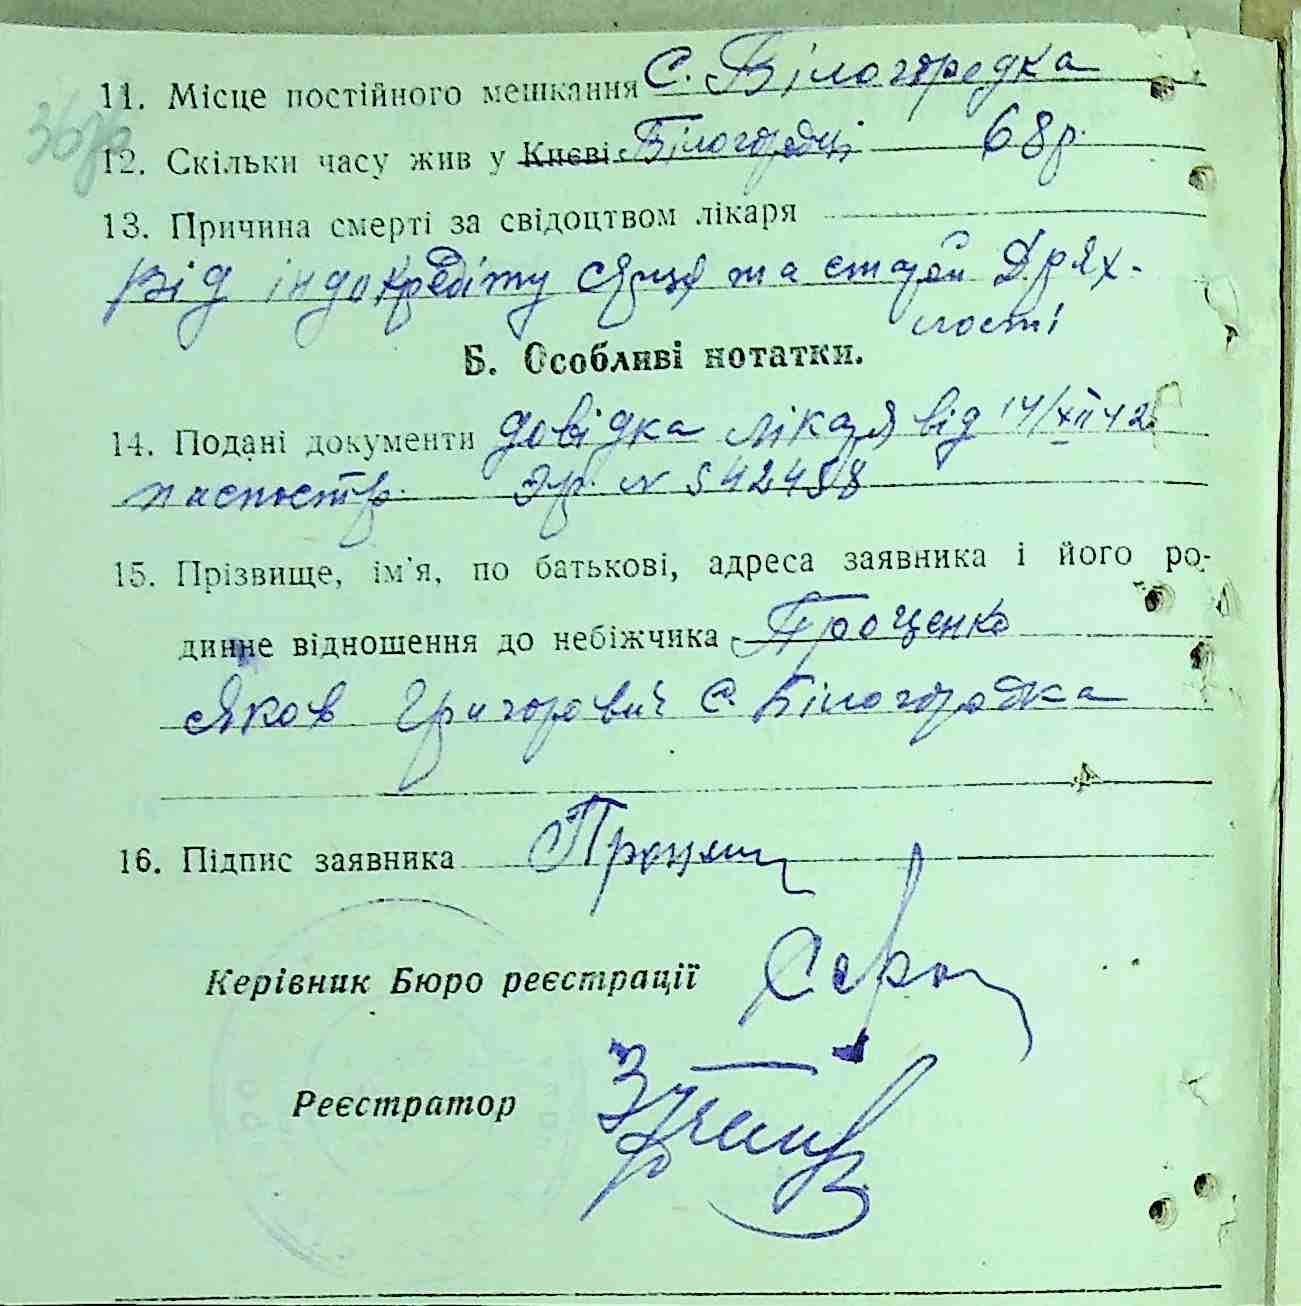 11. Місце постійного мешкання с. Білогородка
12. Скільки часу жив у Києві Білогородці 68 р.
13. Причина смерті за свідоцтвом лікаря
від індокредіту та старої Дрях-
лості
Б. Особливі нотатки.
14. Подані документи довідка лікаря від 14/XII 42
паспостр. № 542498
15. Прізвище, ім'я, по батькові, адреса заявника і його ро-
динне відношення до небіжчика Проценко
Яков Григорович с. Білогородка
16. Підпис заявника
Керівник Бюро реєстрації
Реєстратор